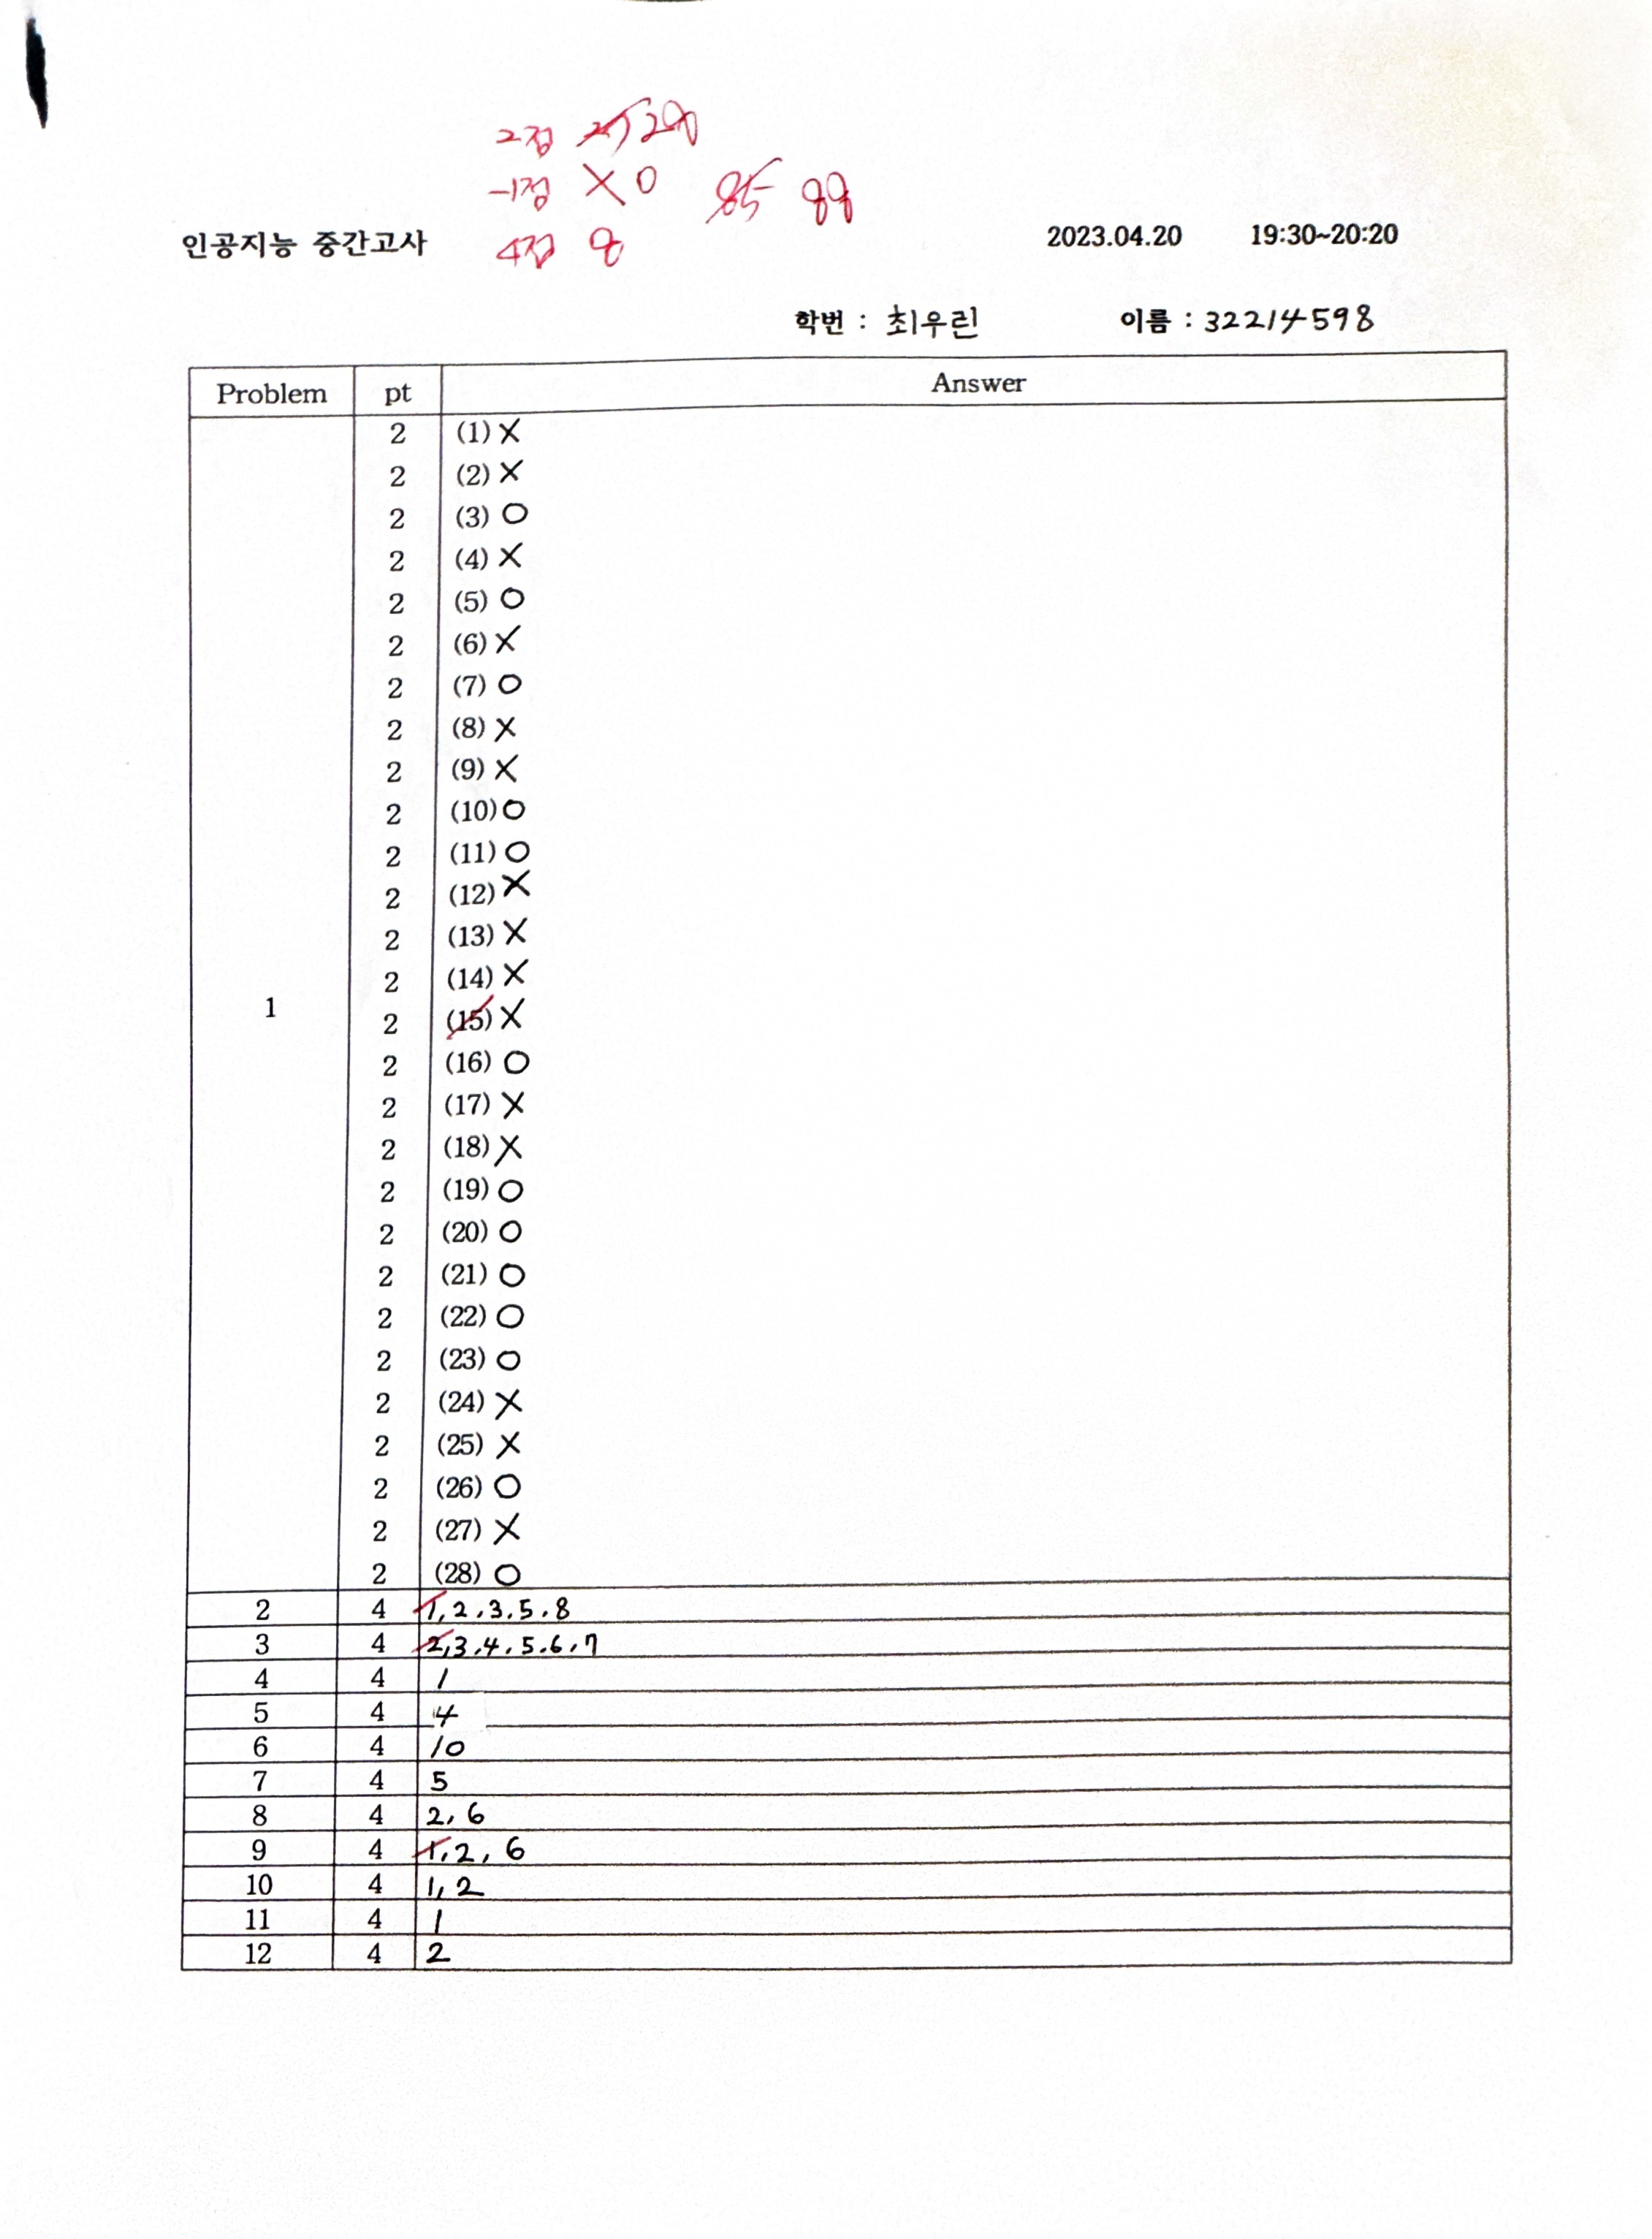 2점 28
-1점 X 0 85 88
인공지능 중간고사 4점 8 2023.04.20 19:30~20:20
학번 : 최우린 이름 : 32214598
Problem pt Answer
2 (1) X
2 (2) X
2 (3) O
2 (4) X
2 (5) O
2 (6) X
2 (7) O
2 (8) X
2 (9) X
2 (10) O
2 (11) O
2 (12) X
2 (13) X
2 (14) X
1 2 (15) X
2 (16) O
2 (17) X
2 (18) X
2 (19) O
2 (20) O
2 (21) O
2 (22) O
2 (23) O
2 (24) X
2 (25) X
2 (26) O
2 (27) X
2 (28) O
2 4 1, 2, 3, 5, 8
3 4 2, 3, 4, 5, 6, 7
4 4 1
5 4 4
6 4 10
7 4 5
8 4 2, 6
9 4 1, 2, 6
10 4 1, 2
11 4 1
12 4 2